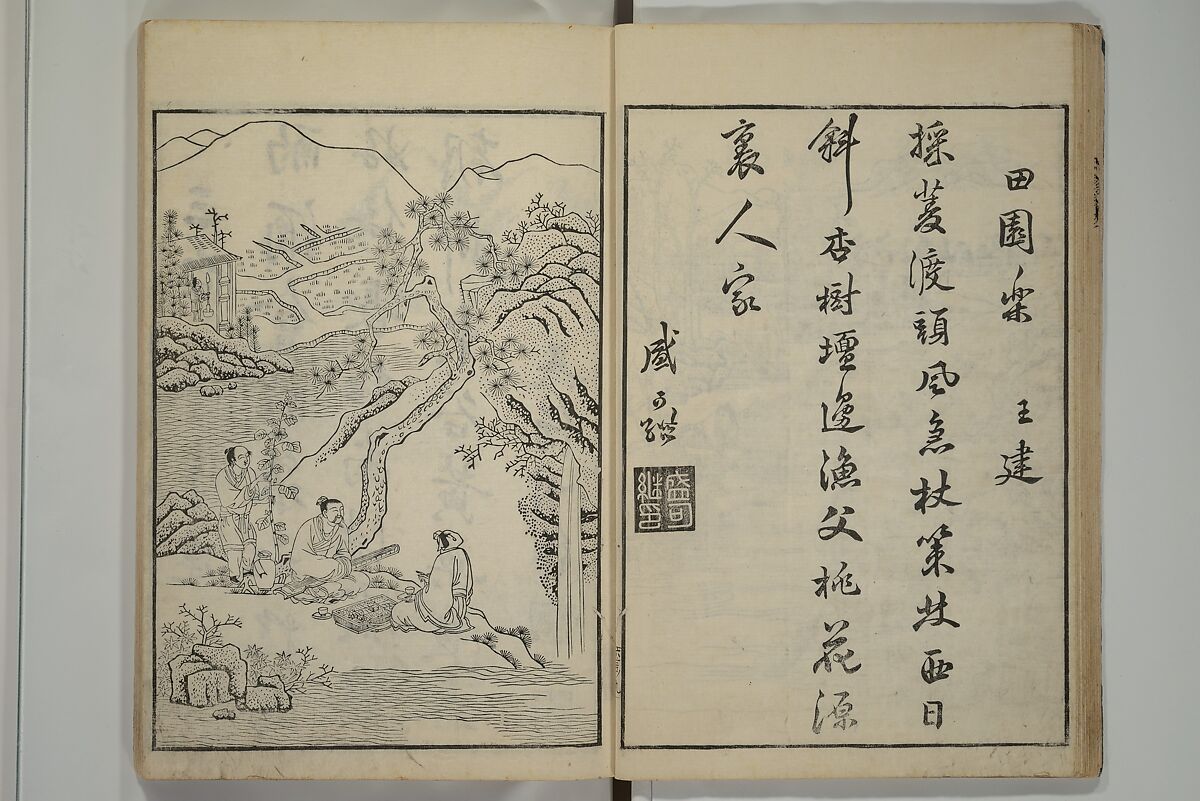 田園樂 王建
採菱渡頭風急杖策林西日
斜杏樹壇邊漁父桃花源
裏人家
盛可繼
盛可継印